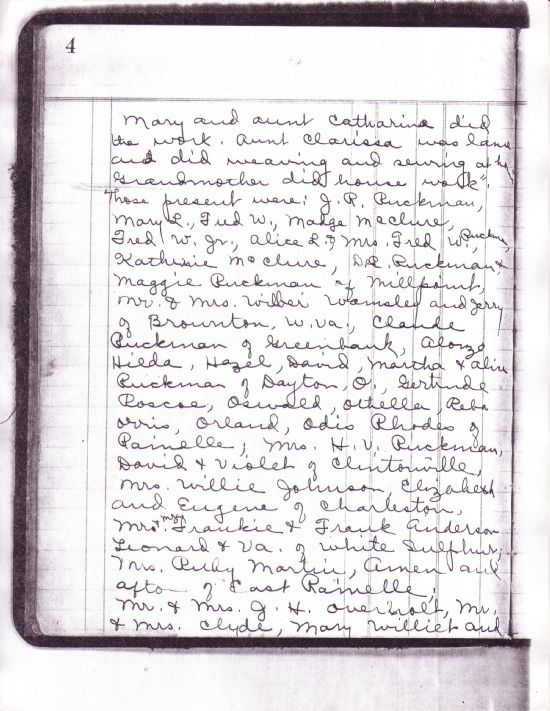 4
Mary and aunt Catharine did
the work. Aunt Clarissa was lame
and did weaving and sewing at he
Grandmother did house work".
Those present were: J. P. Ruckman,
Mary L., Fred W., Madge McClure,
Fred W. Jr., Alice L. & Mrs. Fred W. Ruckman,
Katherine McClure, D. L. Ruckman &
Maggie Ruckman of Millpoint,
Mr. & Mrs. Wilber Wamsley and Jerry
of Brounton, W. Va., Claude
Ruckman of Greenbank, Alonzo
Hilda, Hazel, David, Martha & Alice
Ruckman of Dayton, O., Gertrude
Roscoe, Oswald, Othella, Reba
Orris, Orland, Odis Rhodes of
Rainelle, Mrs. H. V. Ruckman,
David & Violet of Clintonville,
Mrs. Willie Johnson, Elizabeth
and Eugene of Charleston,
Mrs Frankie & Frank Anderson
Leonard & Va. of White Sulphur;
Mrs. Ruby Martin, Amen and
Afton of East Rainelle;
Mr. & Mrs. J. H. Overholt, Mr.
& Mrs. Clyde, Mary and